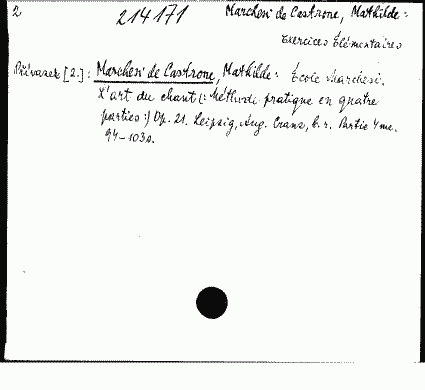 2 214171 Marchesi de Castrone, Mathilde:
Exercices Élémentaires
Přívazek [2.]: Marchesi de Castrone, Mathilde: École Marchesi.
L'art du chant (: Méthode pratique en quatre
parties :) Op. 21. Leipzig, Aug. Cranz, b. r. Partie 4me.
94-103 s.